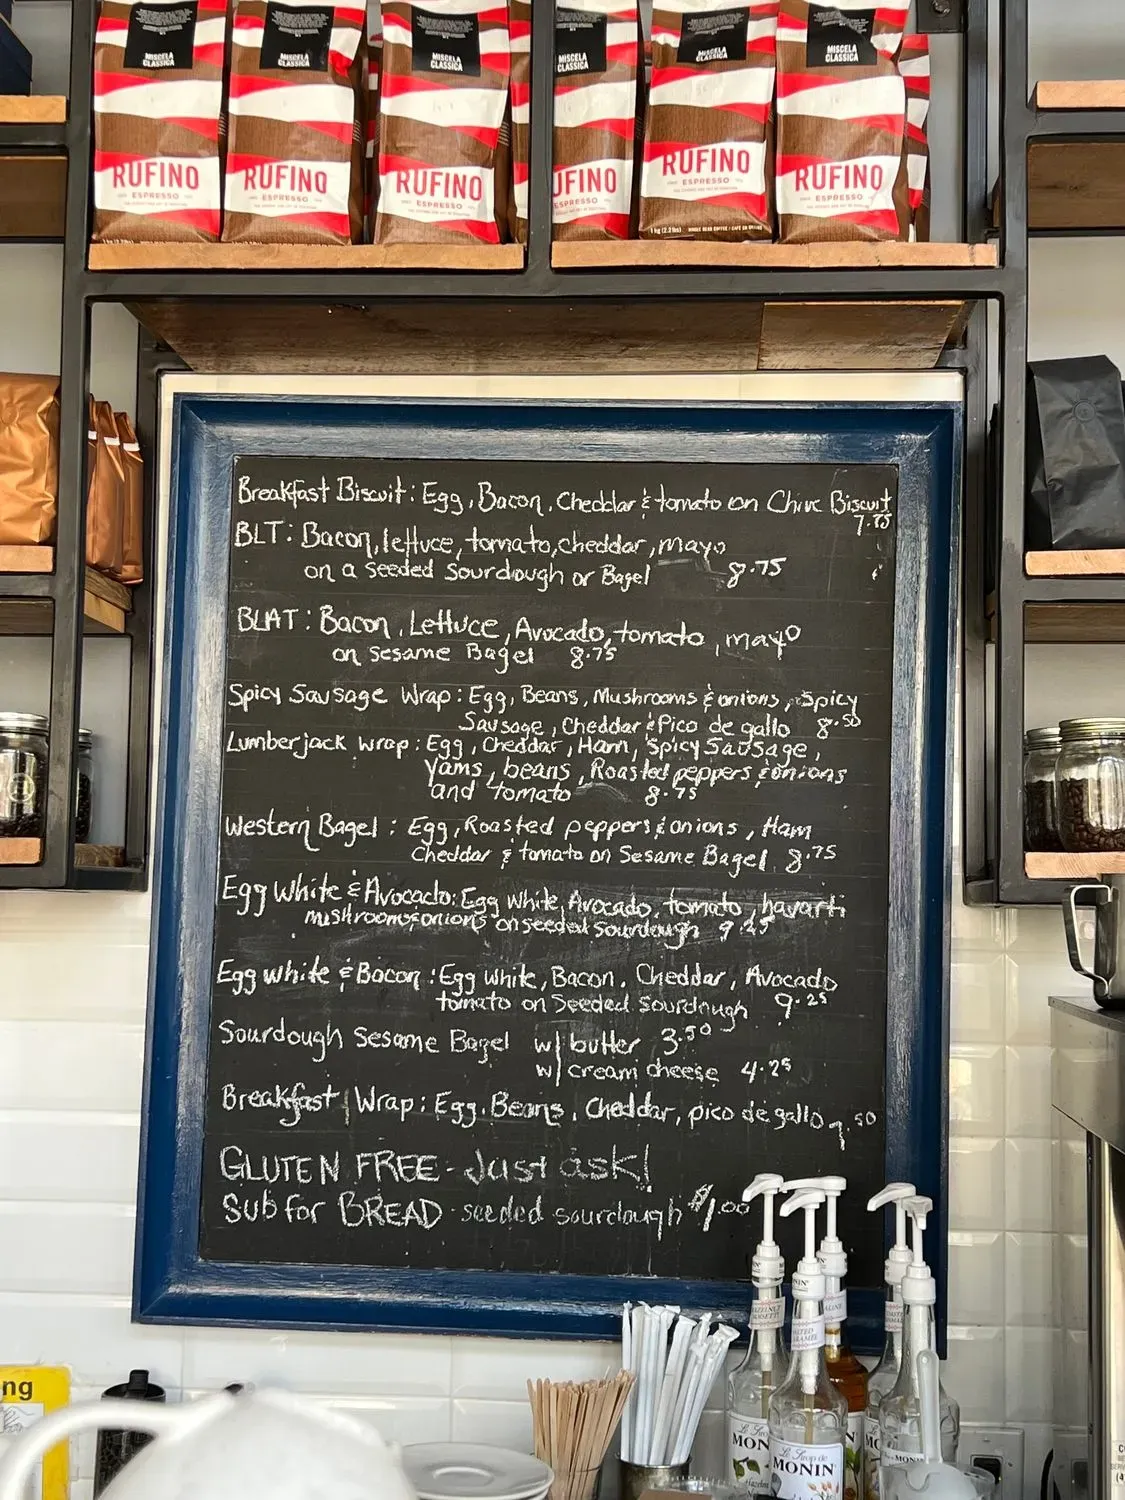 MISCELA CLASSICA
MISCELA CLASSICA
MISCELA CLASSICA
MISCELA CLASSICA
MISCELA CLASSICA
MISCELA CLASSICA
RUFINO
ESPRESSO
RUFINO
ESPRESSO
RUFINO
ESPRESSO
UFINO
ESPRESSO
RUFINO
ESPRESSO
1 kg (2.2 lbs) WHOLE BEAN COFFEE / CAFÉ EN GRAINS
RUFINO
ESPRESSO
Breakfast Biscuit: Egg, Bacon, Cheddar & tomato on Chive Biscuit
7.75
BLT: Bacon, lettuce, tomato, cheddar, mayo
on a seeded Sourdough or Bagel 8.75
BLAT: Bacon, Lettuce, Avocado, tomato, mayo
on sesame Bagel 8.75
Spicy Sausage Wrap: Egg, Beans, Mushrooms & onions, Spicy
Sausage, Cheddar & Pico de gallo 8.50
Lumberjack wrap: Egg, Cheddar, Ham, Spicy Sausage,
Yams, beans, Roasted peppers & onions
and tomato 8.75
Western Bagel: Egg, Roasted peppers & onions, Ham
Cheddar & tomato on Sesame Bagel 8.75
Egg White & Avocado: Egg White, Avocado, tomato, havarti
mushrooms & onions on seeded sourdough 9.25
Egg white & Bacon: Egg white, Bacon, Cheddar, Avocado
tomato on Seeded Sourdough 9.25
Sourdough Sesame Bagel w/ butter 3.50
w/ cream cheese 4.25
Breakfast Wrap: Egg, Beans, Cheddar, pico de gallo 7.50
GLUTEN FREE - Just ask!
Sub for BREAD - seeded sourdough $1.00
ng
HAZELNUT
SALTED
CARAMEL
Le Sirop de
MONIN
Hazelnut
Le Sirop de
MONIN
MONIN